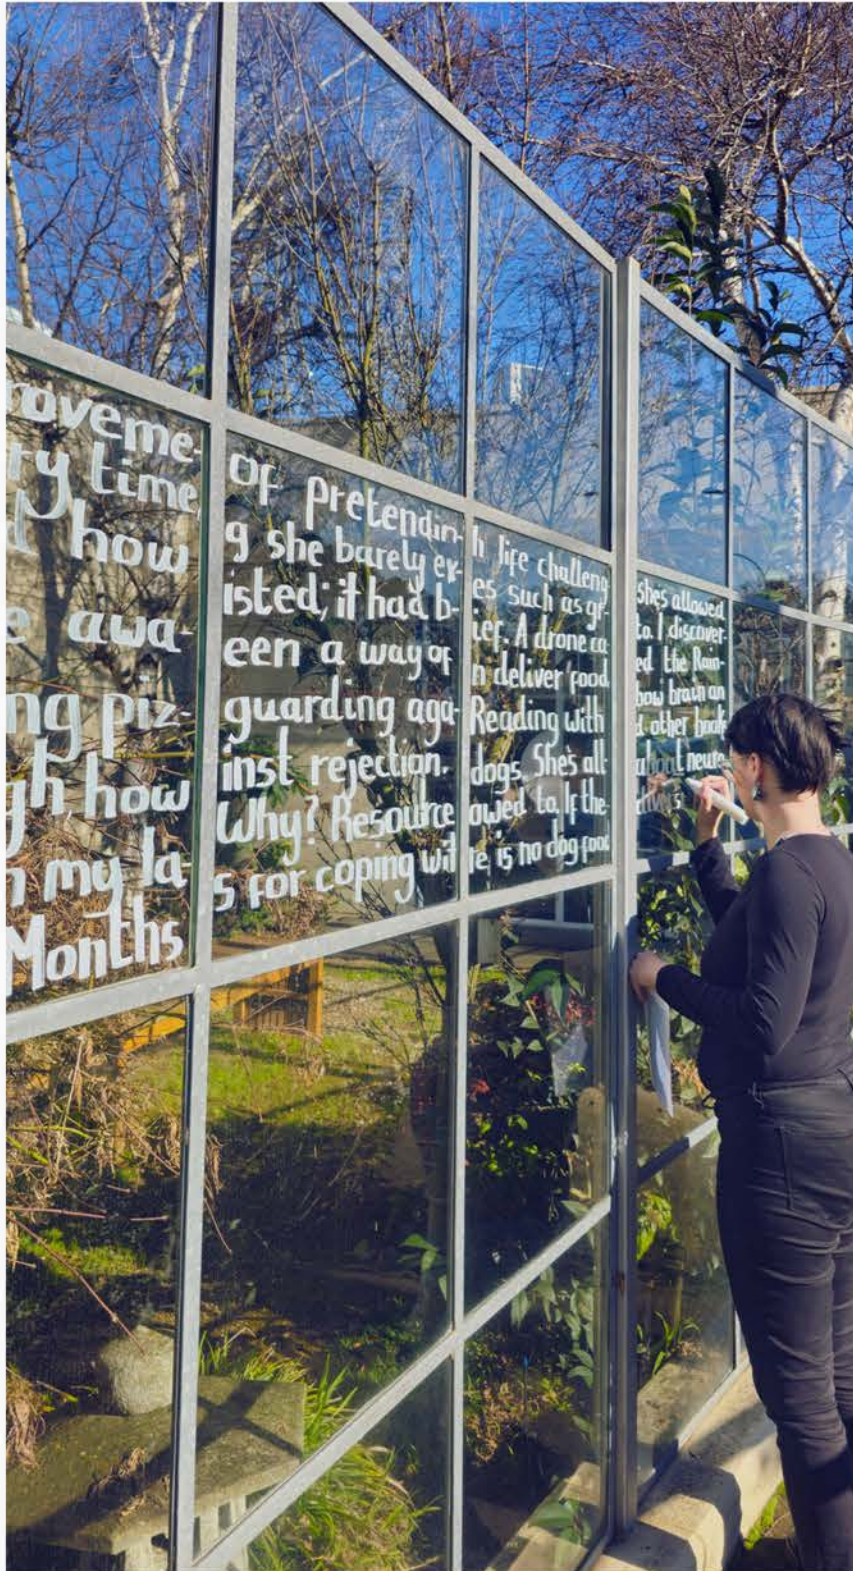 roveme-
ry time,
how
e awa-
ng piz-
gh, how
n my la-
Months
of pretendin-
g she barely ex-
isted; it had b-
een a way of
guarding aga-
inst rejection.
Why? Resource
s for coping wit
h life challeng
es such as gr-
ief. A drone ca
n deliver food.
Reading with
dogs. She's all
owed to. If the-
re is no dog food
shes allowed
to. I discover-
ed the Rain-
bow brain an
d other books
about neuro-
divis